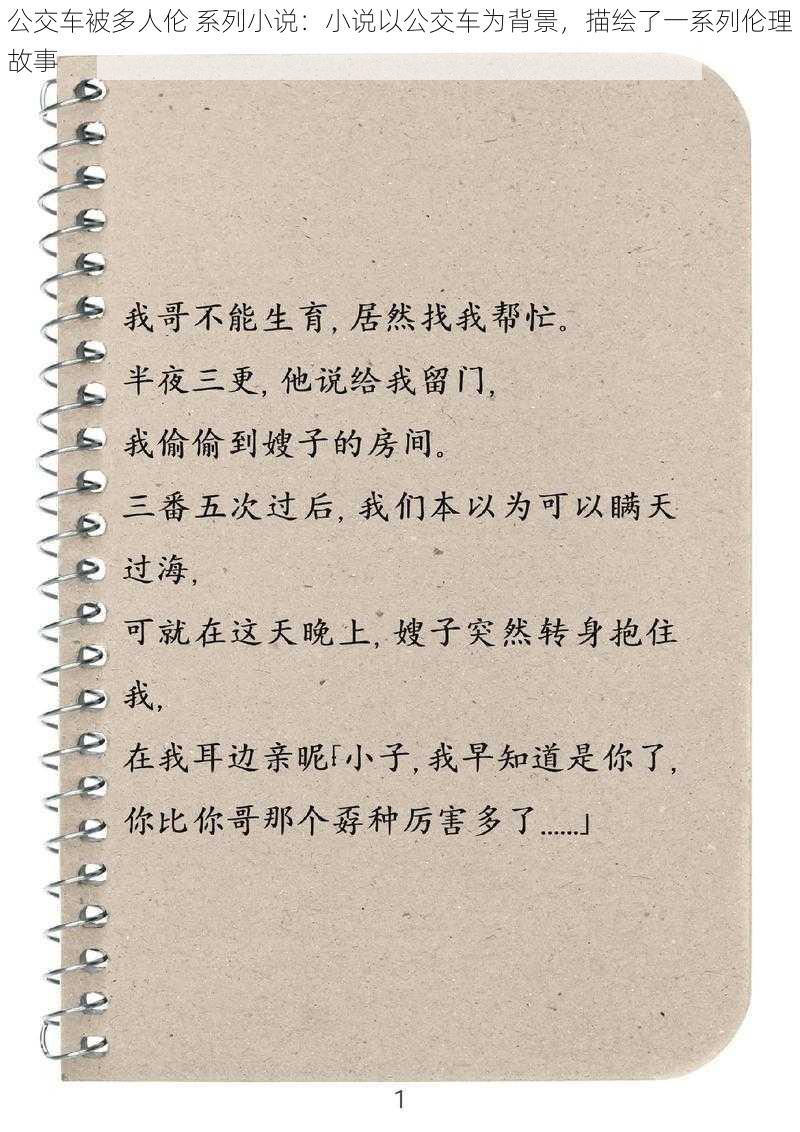 公交车被多人伦 系列小说：小说以公交车为背景，描绘了一系列伦理
故事
我哥不能生育,居然找我帮忙。
半夜三更,他说给我留门,
我偷偷到嫂子的房间。
三番五次过后,我们本以为可以瞒天
过海,
可就在这天晚上,嫂子突然转身抱住
我,
在我耳边亲昵「小子,我早知道是你了,
你比你哥那个孬种厉害多了......」
1